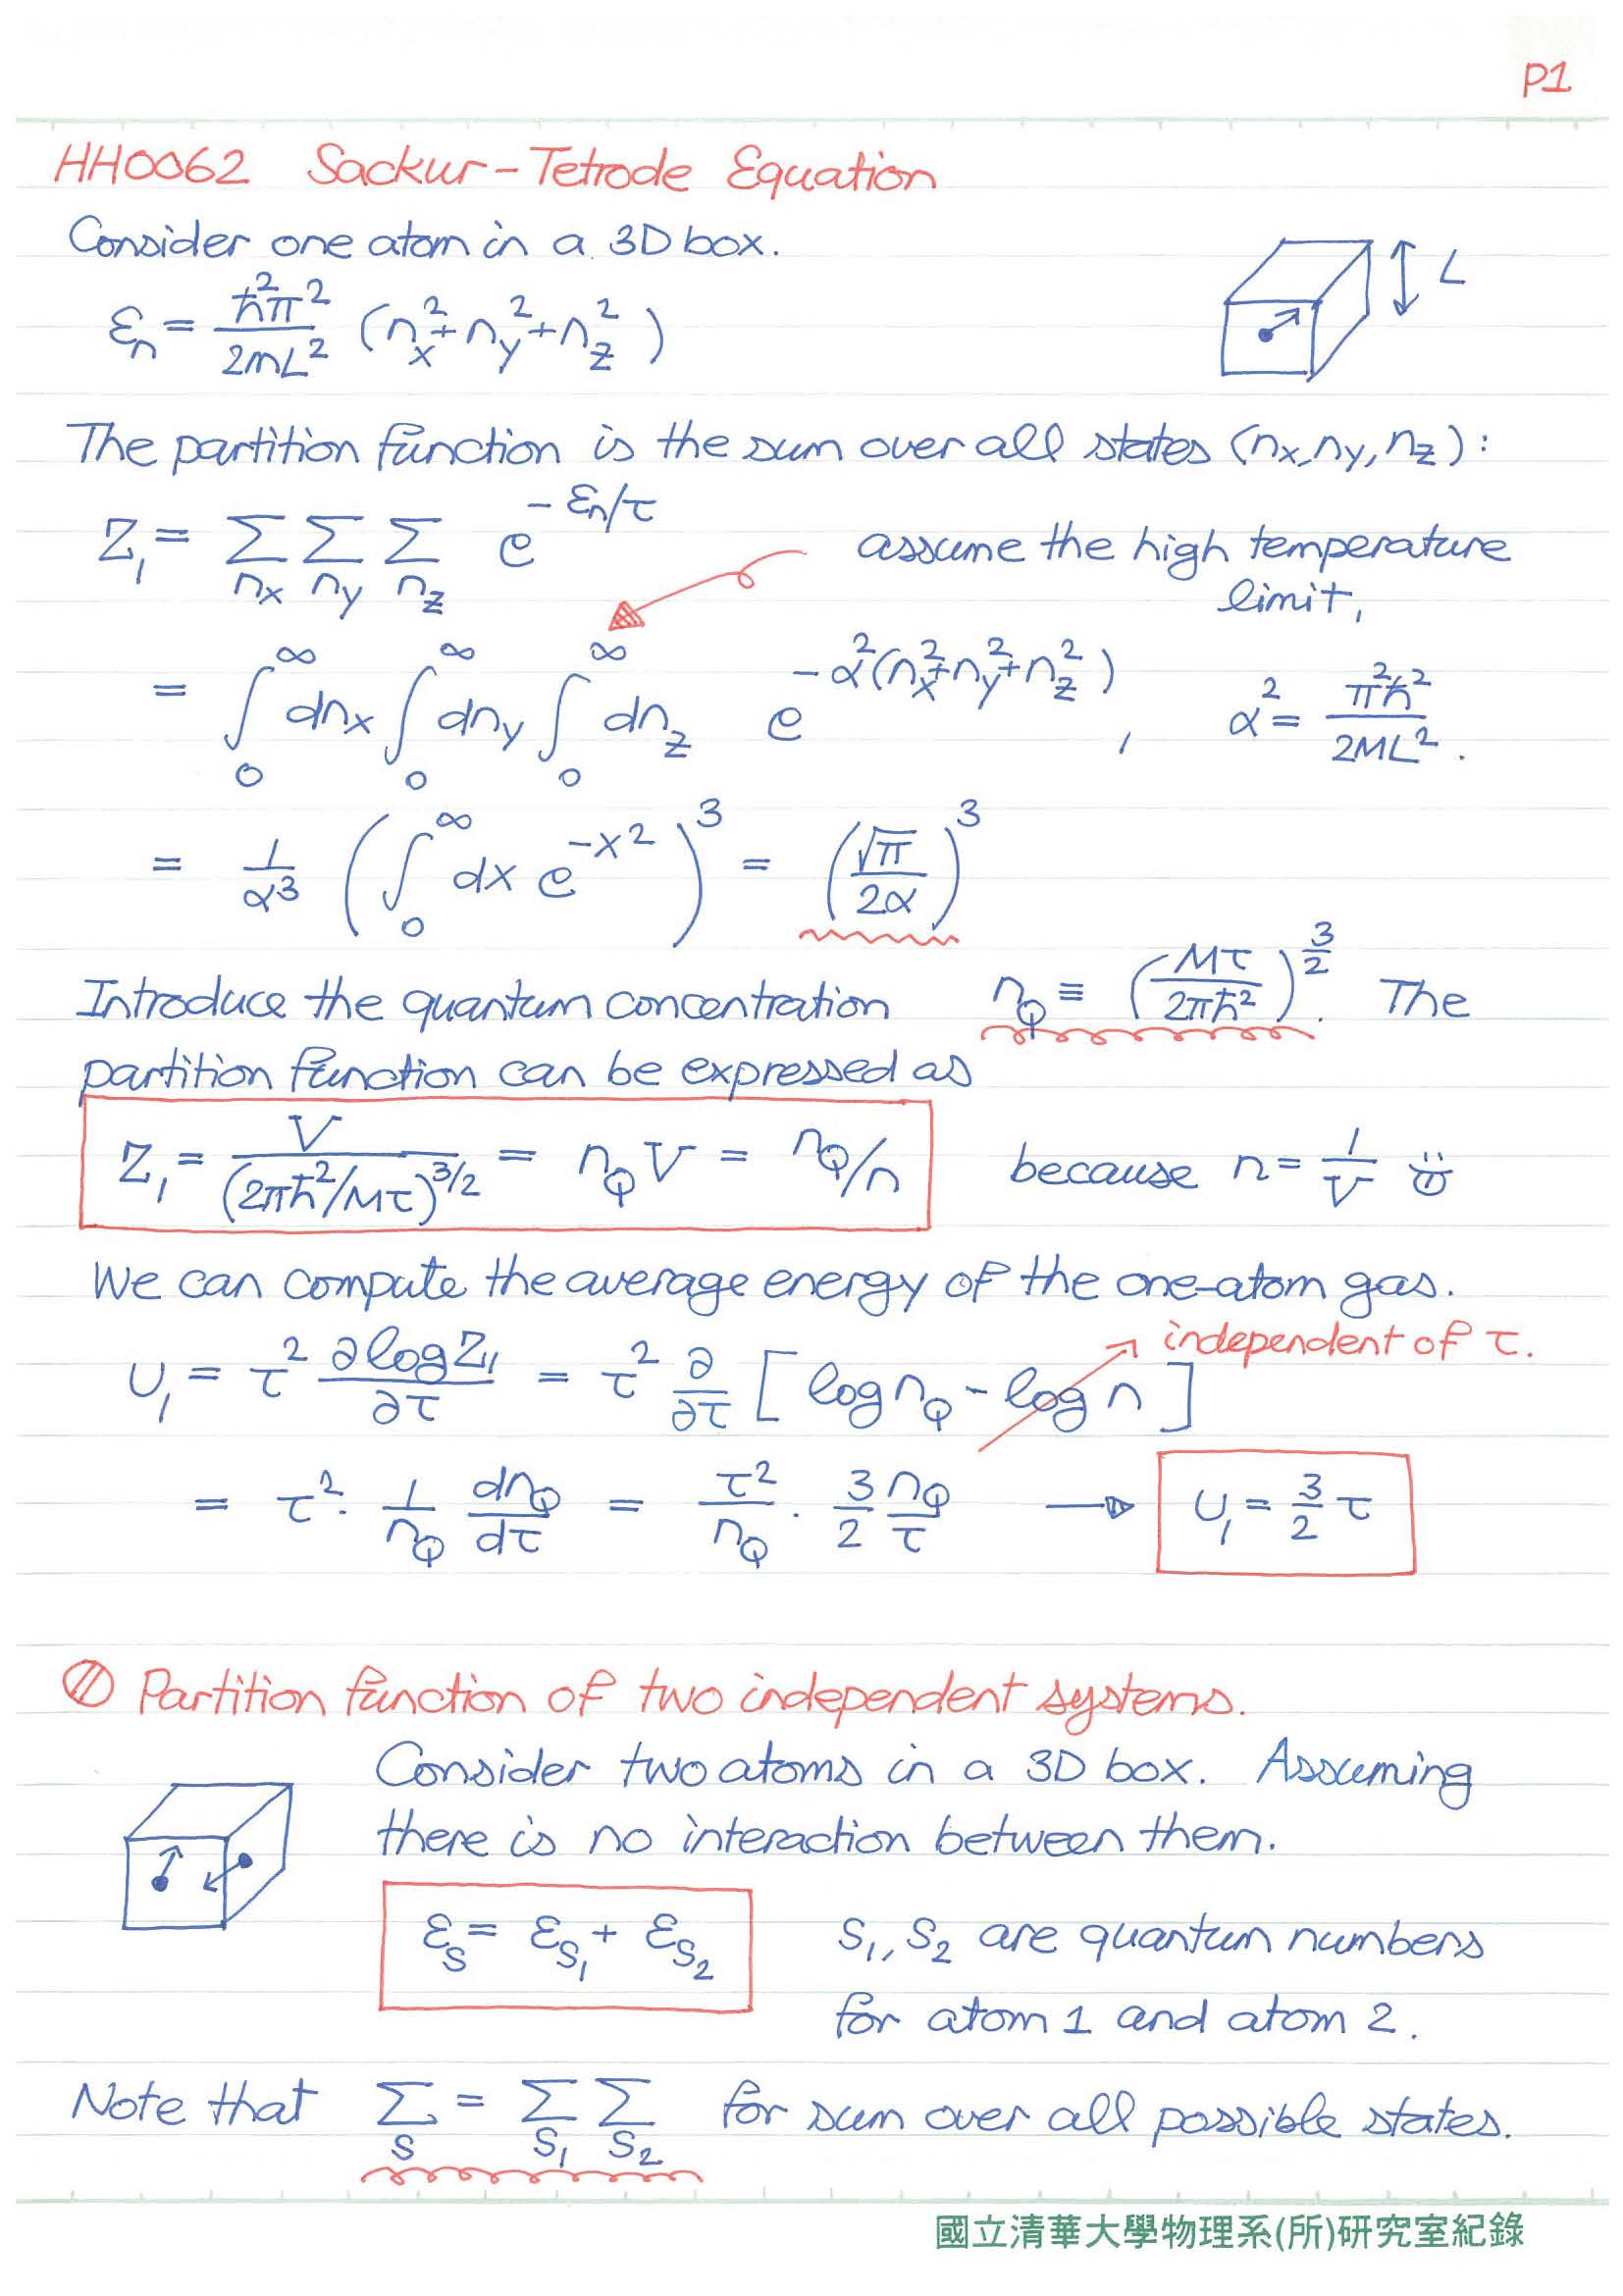 P1
HH0062 Sackur-Tetrode Equation
Consider one atom in a 3D box.
L
εₙ = ℏ²π²/2mL² (nₓ²+n_y²+n_z²)
The partition function is the sum over all states (nₓ, n_y, n_z) :
Z₁ = Σ_nₓ Σ_n_y Σ_n_z e^(-εₙ/τ) assume the high temperature
limit,
= ∫₀^∞ dnₓ ∫₀^∞ dn_y ∫₀^∞ dn_z e^(-α²(nₓ²+n_y²+n_z²)) , α² = π²ℏ²/2ML² .
= 1/α³ (∫₀^∞ dx e^(-x²))³ = (√π/2α)³
Introduce the quantum concentration n_Q ≡ (Mτ/2πℏ²)^(3/2). The
partition function can be expressed as
Z₁ = V/(2πℏ²/Mτ)^(3/2) = n_Q V = n_Q/n because n = 1/V
We can compute the average energy of the one-atom gas.
independent of τ.
U₁ = τ² ∂logZ₁/∂τ = τ² ∂/∂τ [log n_Q - log n]
= τ² · 1/n_Q dn_Q/dτ = τ²/n_Q · 3/2 n_Q/τ → U₁ = 3/2 τ
Partition function of two independent systems.
Consider two atoms in a 3D box. Assuming
there is no interaction between them.
ε_S = ε_S₁ + ε_S₂ S₁, S₂ are quantum numbers
for atom 1 and atom 2.
Note that Σ_S = Σ_S₁ Σ_S₂ for sum over all possible states.
國立清華大學物理系(所)研究室紀錄